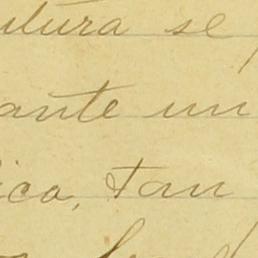 utura se
ante un
ica, tan